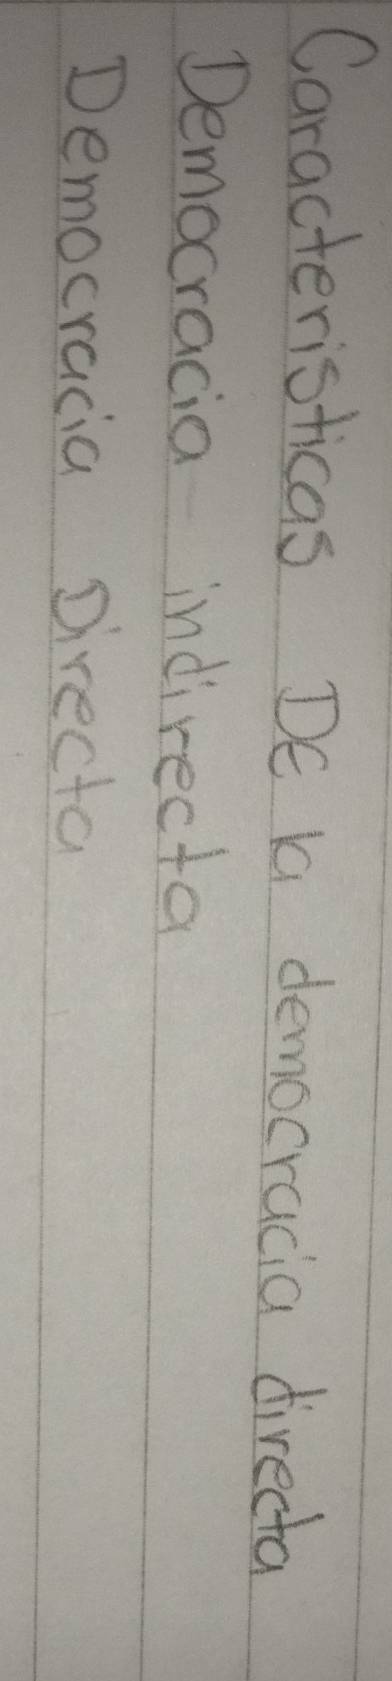 Caracteristicas De la democracia directa
Democracia indirecta
Democracia Directa